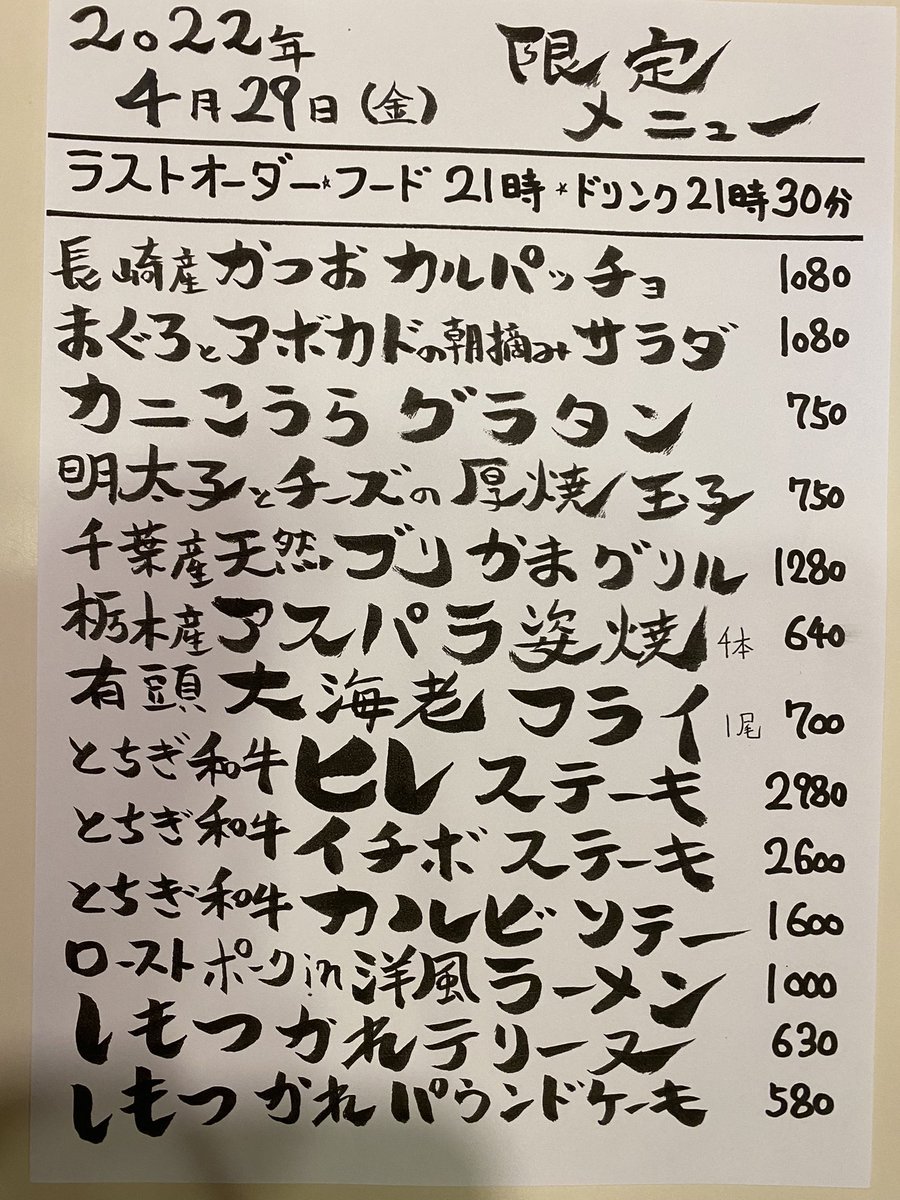 2022年
4月29日(金)
限定
メニュー
ラストオーダー☆フード 21時 ☆ドリンク 21時30分
長崎産かつおカルパッチョ 1080
まぐろとアボカドの朝摘みサラダ 1080
カニこうらグラタン 750
明太子とチーズの厚焼玉子 750
千葉産天然ブリかまグリル 1280
栃木産アスパラ姿焼 4本 640
有頭大海老フライ 1尾 700
とちぎ和牛ヒレステーキ 2980
とちぎ和牛イチボステーキ 2600
とちぎ和牛カルビソテー 1600
ローストポークin洋風ラーメン 1000
しもつかれテリーヌ 630
しもつかれパウンドケーキ 580